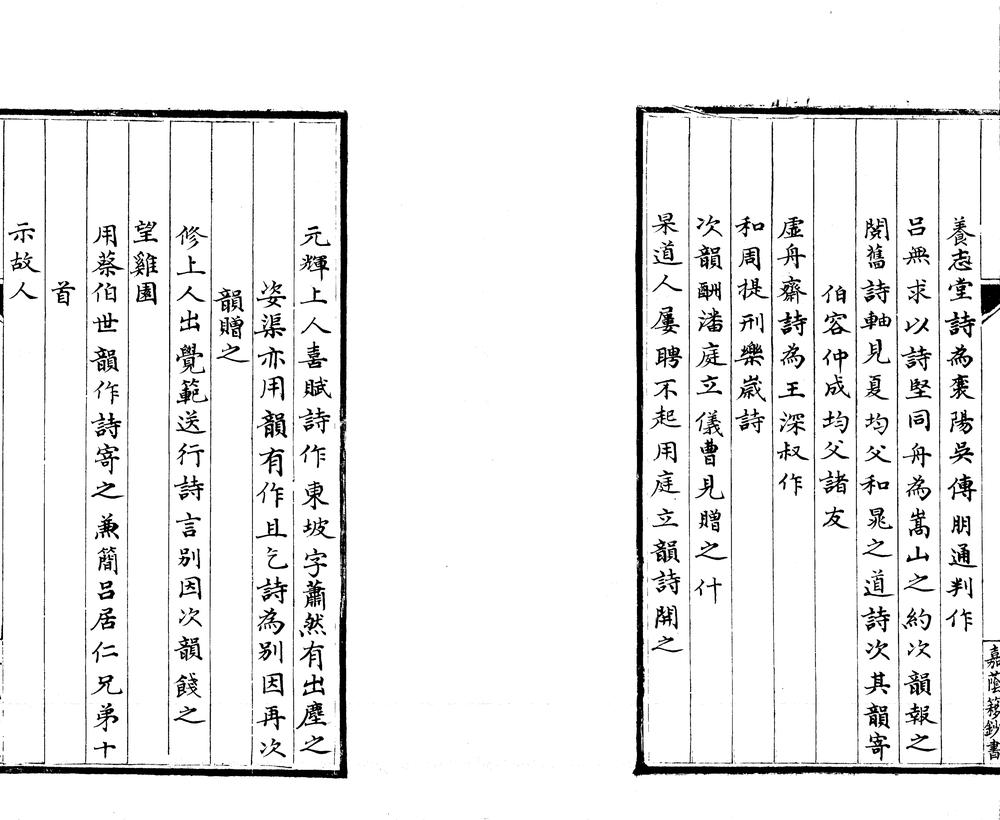 養志堂詩為裹陽吳傅朋通判作
呂無求以詩堅同舟為嵩山之約次韻報之
閱舊詩軸見夏均父和晁之道詩次其韻寄
伯容仲成均父諸友
虛舟齋詩為王深叔作
和周提刑樂歲詩
次韻酬潘庭立儀曹見贈之什
杲道人屢聘不起用庭立韻詩開之
嘉蔭簃鈔書
元輝上人喜賦詩作東坡字蕭然有出塵之
姿渠亦用韻有作且乞詩為別因再次
韻贈之
修上人出覺範送行詩言別因次韻餞之
望雞園
用蔡伯世韻作詩寄之兼簡呂居仁兄弟十
首
示故人